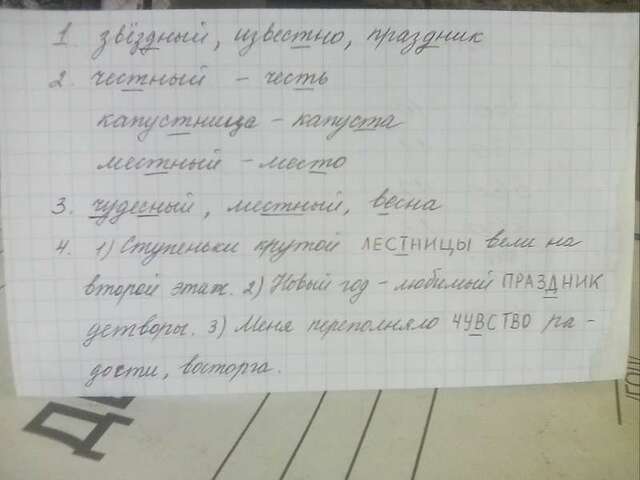 1. звёздный, известно, праздник
2. честный - честь
капустница - капуста
местный - место
3. чудесный, местный, весна
4. 1) Ступеньки крутой ЛЕСТНИЦЫ вели на
второй этаж. 2) Новый год - любимый ПРАЗДНИК
детворы. 3) Меня переполняло ЧУВСТВО ра-
дости, восторга.